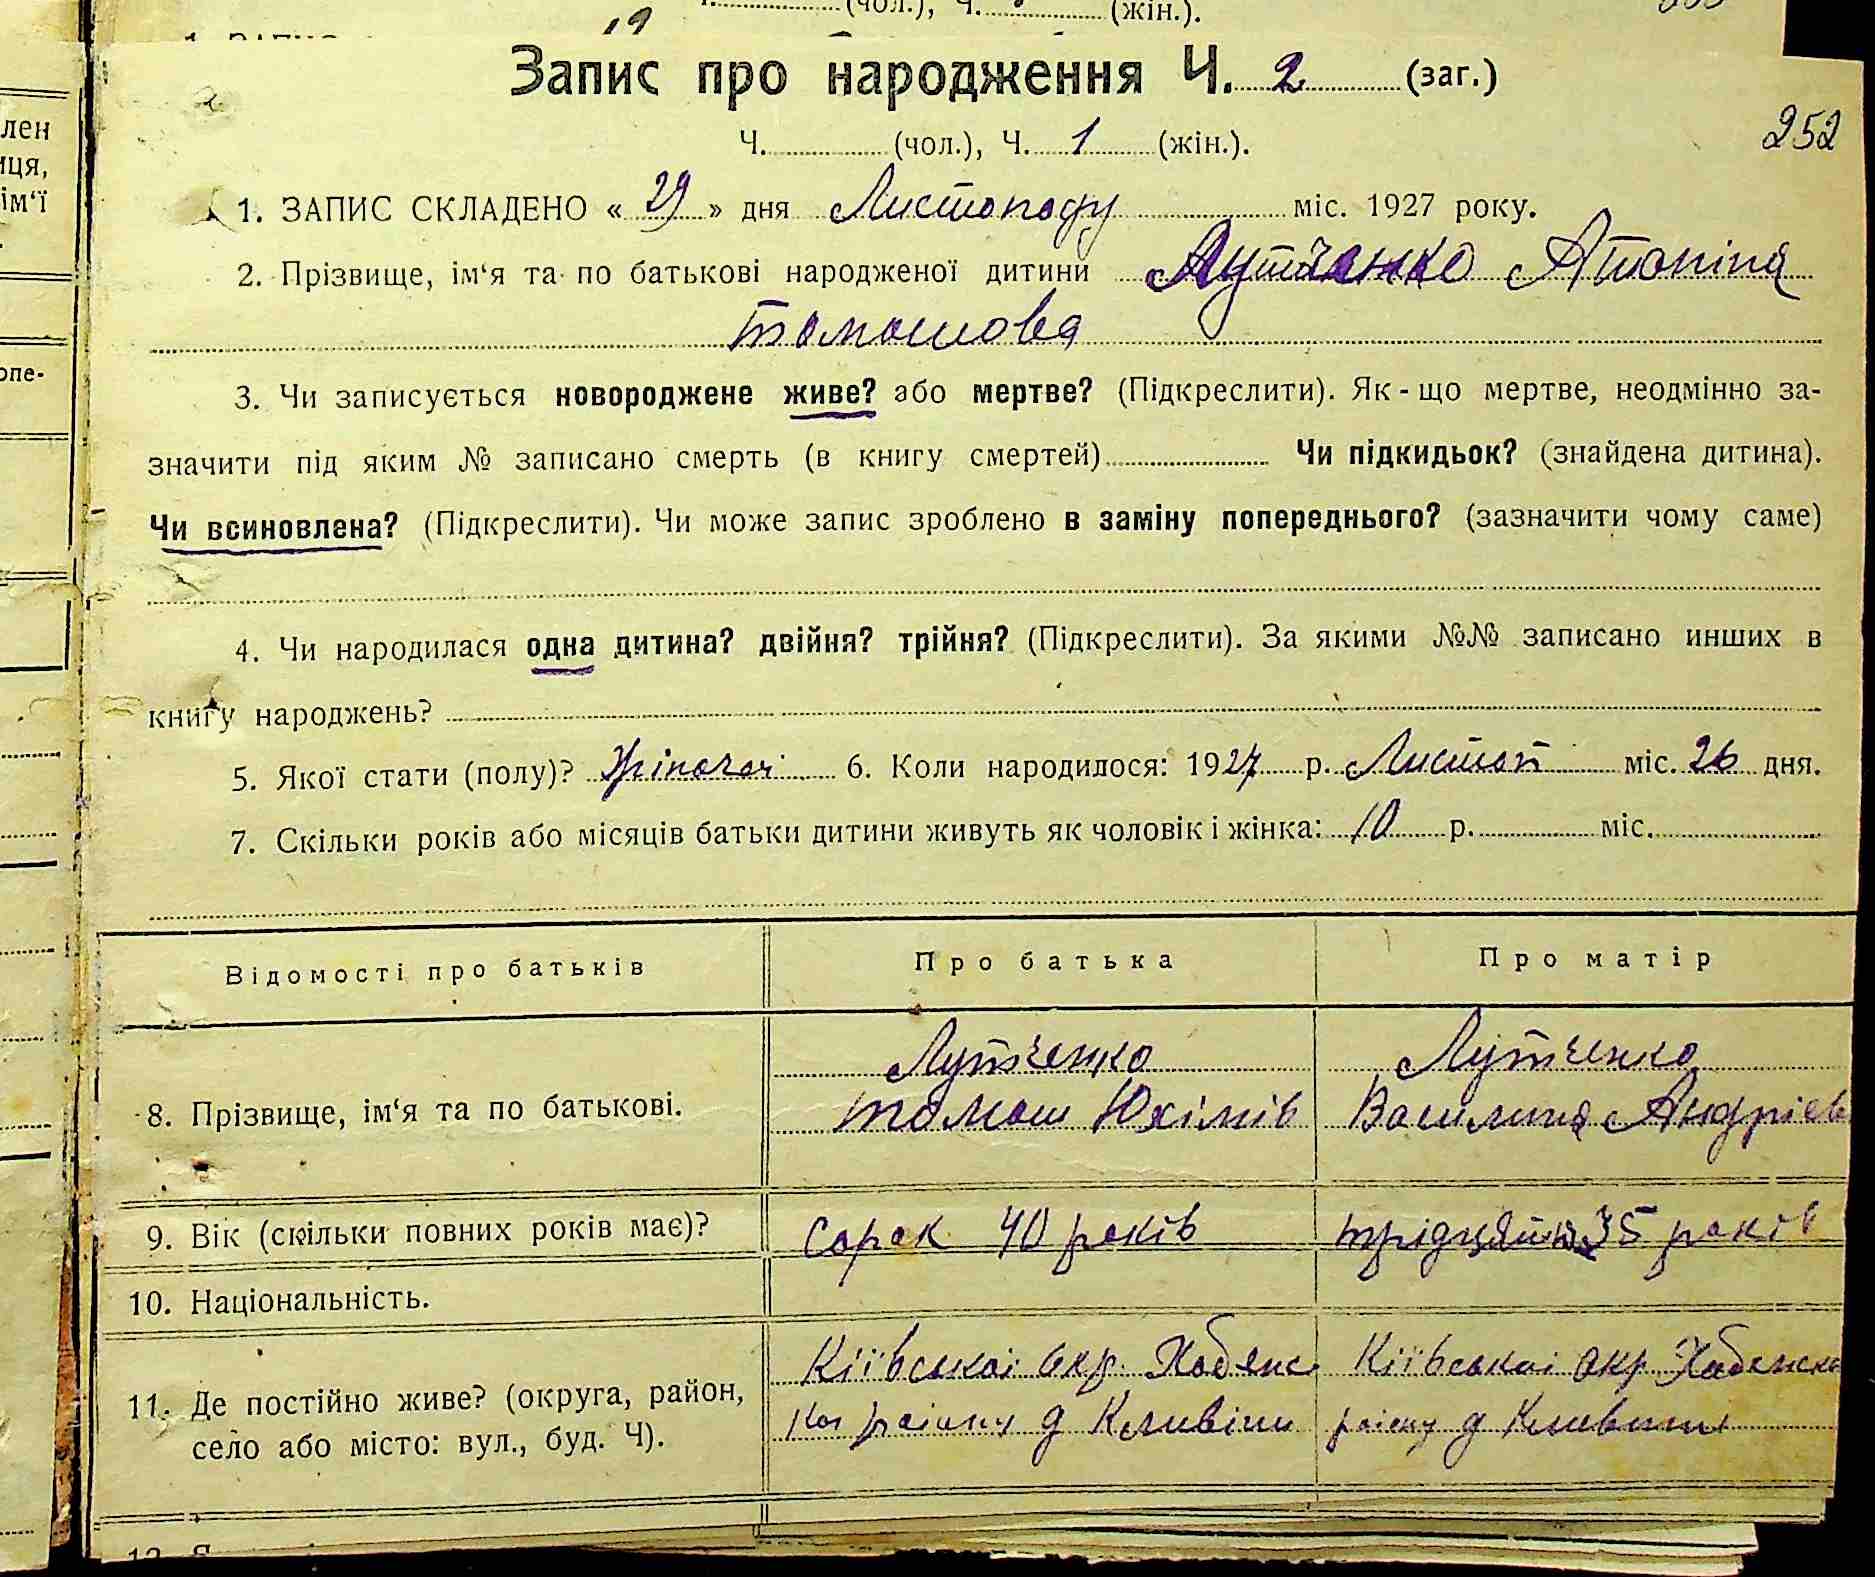 (чол.), Ч. (жін.).
Запис про народження Ч. 2 (заг.)
252
Ч. (чол.), Ч. 1 (жін.).
1. ЗАПИС СКЛАДЕНО « 29 » дня Листопаду міс. 1927 року.
2. Прізвище, ім‘я та по батькові народженої дитини Лутченко Атоніна
Томашова
3. Чи записується новороджене живе? або мертве? (Підкреслити). Як-що мертве, неодмінно за-
значити під яким № записано смерть (в книгу смертей) Чи підкидьок? (знайдена дитина).
Чи всиновлена? (Підкреслити). Чи може запис зроблено в заміну попереднього? (зазначити чому саме)
4. Чи народилася одна дитина? двійня? трійня? (Підкреслити). За якими №№ записано инших в
книгу народжень?
5. Якої стати (полу)? жіночої 6. Коли народилося: 1927 р. Листоп міс. 26 дня.
7. Скільки років або місяців батьки дитини живуть як чоловік і жінка: 10 р. міс.
Відомості про батьків Про батька Про матір
Лутченко Лутченко
8. Прізвище, ім‘я та по батькові. Томаш Юхімів Василина Андріев
9. Вік (скільки повних років має)? сорок 40 років трідцять 35 років
10. Національність.
Кіївськоі окр. Хабенс Кіївськоі окр. Хабенско
11. Де постійно живе? (округа, район, коі раіону д Кливіни раіону д Кливини
село або місто: вул., буд. Ч).